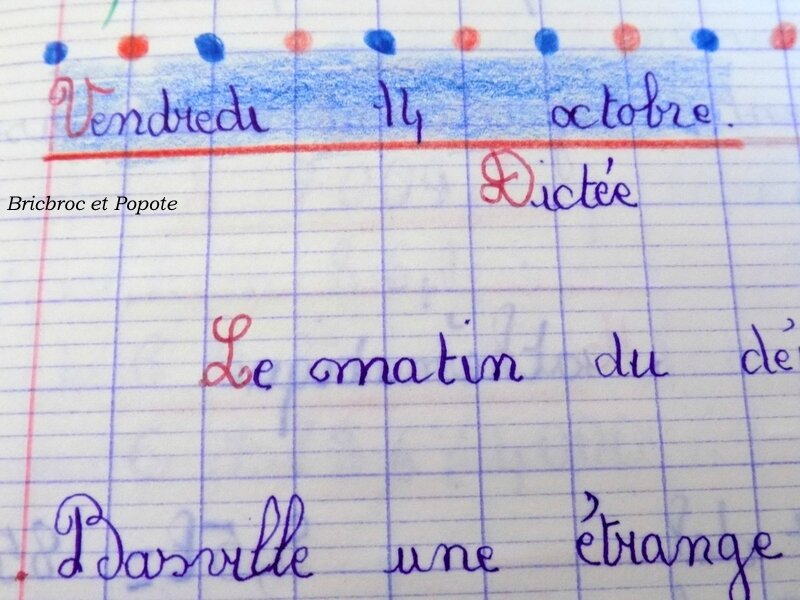 Vendredi 14 octobre.
Dictée
Bricbroc et Popote
Le matin du dé
Basville une étrange